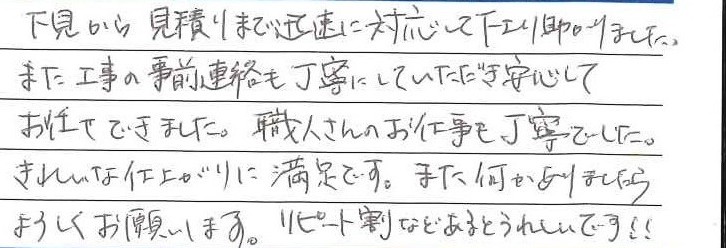 下見から見積りまで迅速に対応して下さり助かりました。
また工事の事前連絡も丁寧にしていただき安心して
お任せできました。職人さんのお仕事も丁寧でした。
きれいな仕上がりに満足です。また何かありましたら
よろしくお願いします。リピート割などあるとうれしいです!!